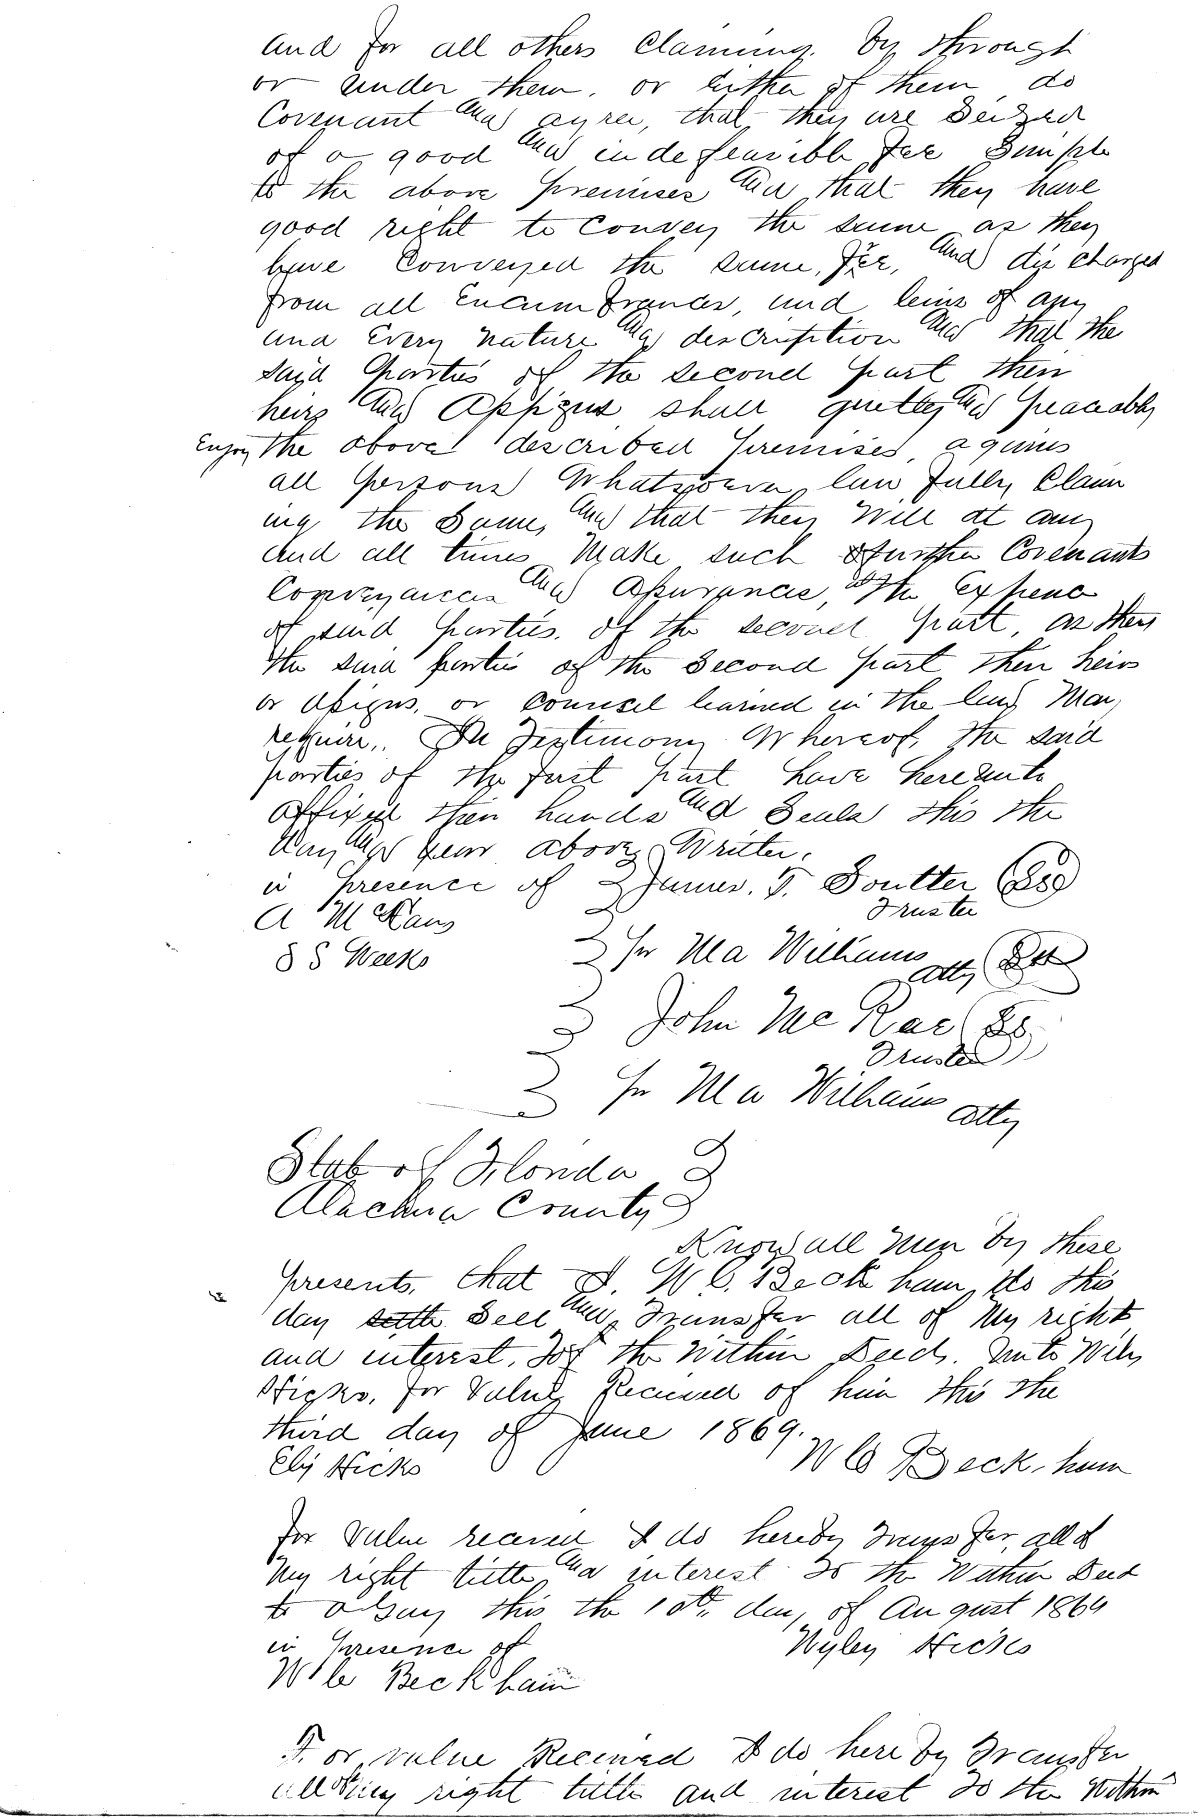 and for all others Claiming. by through
or under them. or Either of them do
Covenant and agree, that they are Seized
of a good and indefeasible Fee Simple
to the above premises and that they have
good right to Convey the same as they
have Conveyed the same, and discharged
from all Encumbrances, and leins of any
and Every nature and description and that the
said parties of the second part their
heirs and Assigns shall quietly and peaceably
Enjoy the above described premises, agains
all persons Whatsoever lawfully Claim
ing the Same, and that they Will at any
and all times Make such further Covenants
Conveyances and Assurances, at the Expence
of said parties. of the second part, as they
the said parties of the Second part their heirs
or Assigns, or counsel learned in the law May,
require,. In Testimony Whereof, the said
parties of the first part have hereunto
affixed their hands and Seals this the
day and year above Written.
in presence of James. T. Soutter
Trustee
A McKans
S S Weeks
pr Ma Williams
atty
John Mc Rae
Trustee
pr Ma Williams
atty
State of Florida
Alachua County
Know all Men by these
presents, that I. W C. Beckham, do this
day Sell and Transfer all of My right
and interest. To the Within Deeds. unto Wily
Hicks, for Value Recieved of him this the
third day of June 1869.
Elij Hicks
W C Beck.ham
for Value recieved I do hereby Transfer all of
My right title and interest To the Within Deed
to this the 10th day of August 1869
in presence of
Wyley Hicks
W C Beckham
For value Recieved I do hereby Transfer
all of my right title and interest To the Within